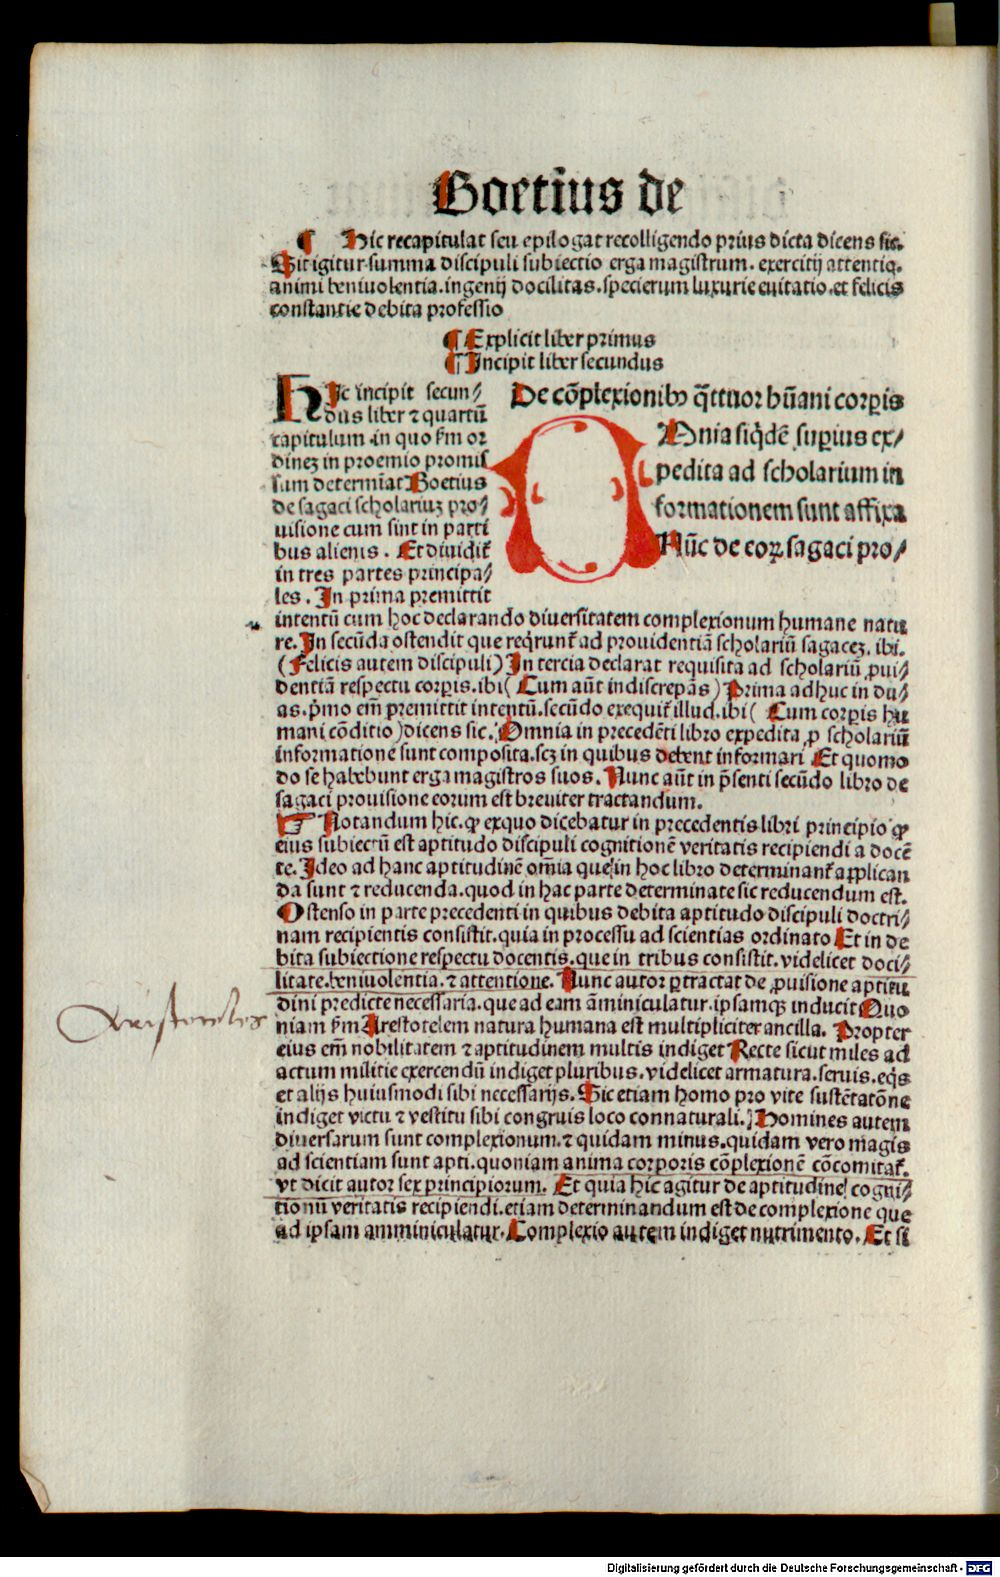 Boetius de
¶ Hic recapitulat seu epilogat recolligendo prius dicta dicens sic.
Sit igitur summa discipuli subiectio erga magistrum. exercitij attentiq.
animi beniuolentia. ingenij docilitas. specierum luxurie euitatio. et felicis
constantie debita professio
¶ Explicit liber primus
¶ Incipit liber secundus
Hic incipit secun/
dus liber ⁊ quartū
capitulum in quo ẜm or
dineꝫ in proemio promis
sum determīat Boetius
de sagaci scholariuꝫ pro/
uisione cum sint in parti
bus alienis. Et diuidit᷑
in tres partes principa/
les. In prima premittit
De cōplexionibꝰ q̄ttuor hūani corꝑis
OMnia siq̇dē suꝑius ex/
pedita ad scholarium in
formationem sunt affixa
Nūc de eoꝝ sagaci pro/
intentū cum hoc declarando diuersitatem complexionum humane natu
re. In secūda ostendit que req̇runt᷑ ad prouidentiā scholariū sagaceꝫ. ibi.
(Felicis autem discipuli) In tercia declarat requisita ad scholariū ꝓui/
dentiā respectu corꝑis. ibi (Cum aūt indiscrepās) Prima adhuc in du/
as. pͥmo em̄ premittit intentū. secūdo exequit᷑ illud. ibi (Cum corꝑis hu
mani cōditio) dicens sic. Omnia in precedēti libro expedita ꝓ scholariū
informatione sunt composita. scꝫ in quibus debent informari Et quomo
do se habebunt erga magistros suos. Nunc aūt in p̄senti secūdo libro de
sagaci prouisione eorum est breuiter tractandum.
☞ Notandum hic. ꝙ exquo dicebatur in precedentis libri principio ꝙ
eius subiectū est aptitudo discipuli cognitionē veritatis recipiendi a docē
te. Ideo ad hanc aptitudinē om̄ia que in hoc libro determinant᷑ applican
da sunt ⁊ reducenda. quod in hac parte determinate sic reducendum est.
Ostenso in parte precedenti in quibus debita aptitudo discipuli doctri/
nam recipientis consistit. quia in processu ad scientias ordinato Et in de
bita subiectione respectu docentis. que in tribus consistit. videlicet doci/
litate. beniuolentia. ⁊ attentione. Nunc autor ꝑtractat de ꝓuisione aptitu
dini predicte necessaria. que ad eam āminiculatur. ipsamqꝫ inducit Quo
niam ẜm Arestotelem natura humana est multipliciter ancilla. Propter
eius em̄ nobilitatem ⁊ aptitudinem multis indiget Recte sicut miles ad
actum militie exercendū indiget pluribus. videlicet armatura. seruis. eq̇s
et alijs huiusmodi sibi necessarijs. Sic etiam homo pro vite sustētatōne
indiget victu ⁊ vestitu sibi congruis loco connaturali. Homines autem
diuersarum sunt complexionum. ⁊ quidam minus. quidam vero magis
ad scientiam sunt apti. quoniam anima corporis cōplexionē cōcomitat᷑.
vt dicit autor sex principiorum. Et quia hic agitur de aptitudine cogni/
tionū veritatis recipiendi. etiam determinandum est de complexione que
ad ipsam amminiculatur. Complexio autem indiget nutrimento. Et si
Aristoteles
Digitalisierung gefördert durch die Deutsche Forschungsgemeinschaft - DFG